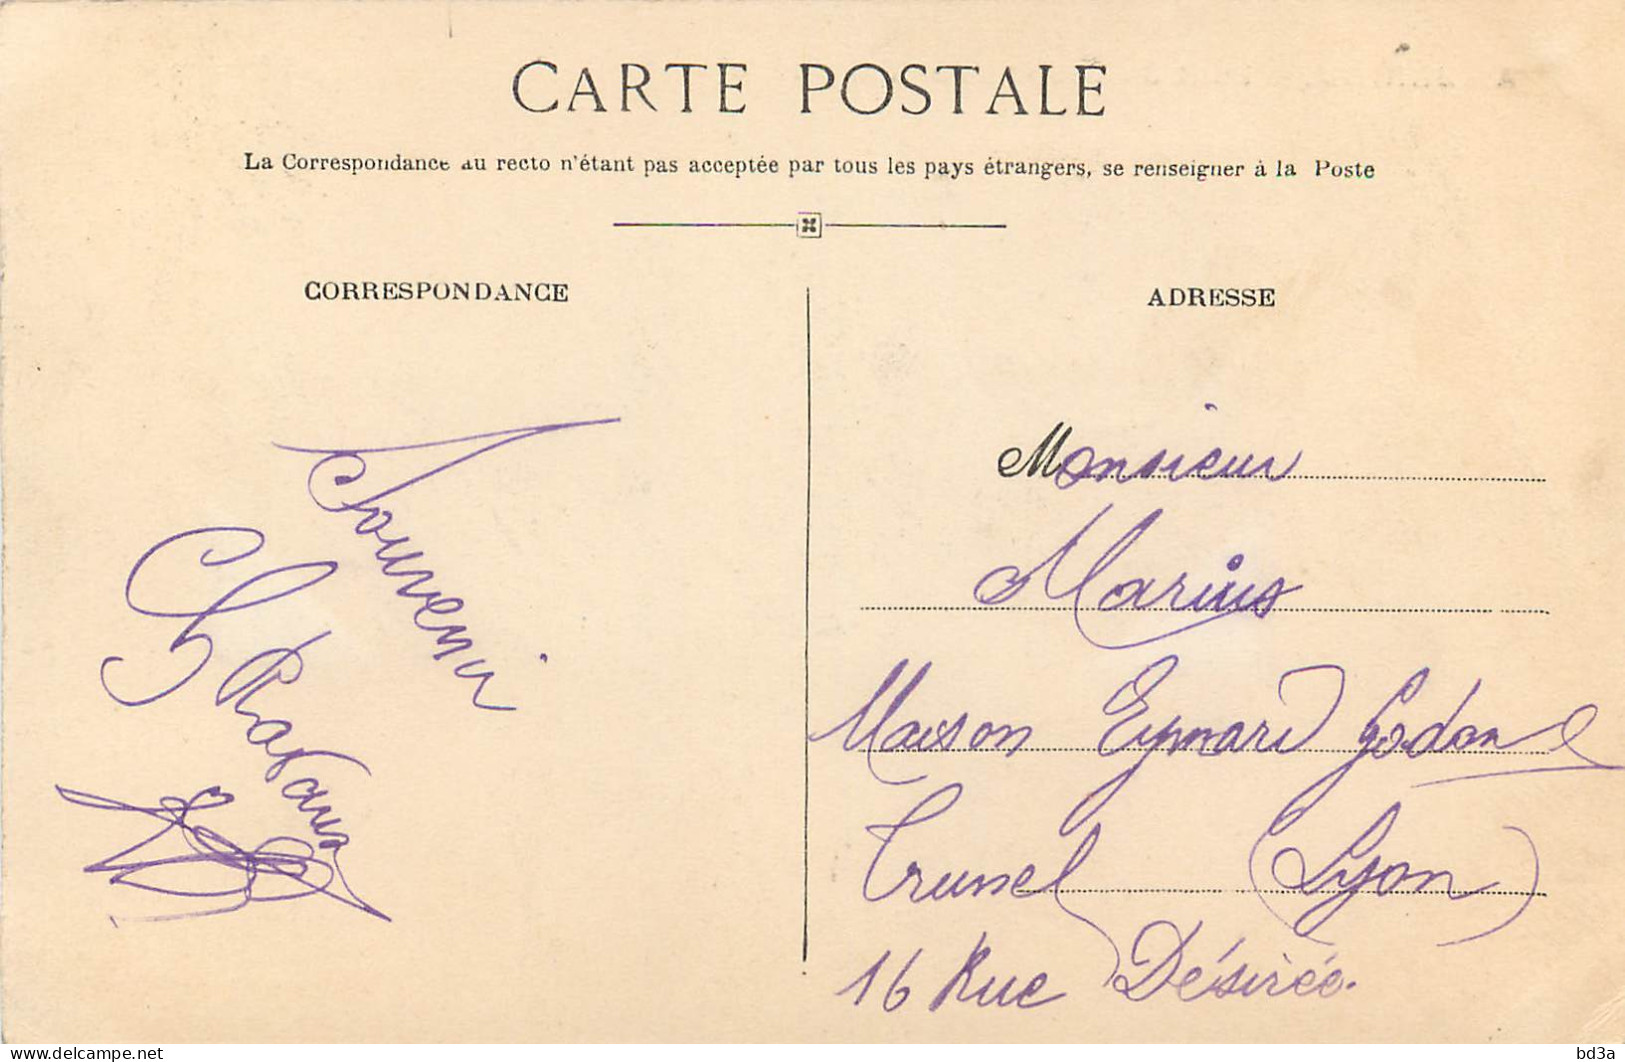 CARTE POSTALE
La Correspondance au recto n'étant pas acceptée par tous les pays étrangers, se renseigner à la Poste
CORRESPONDANCE
Souvenir
ADRESSE
Monsieur
Marius
Maison Eymard Godon
(Lyon)
16 Rue Désirée.
bd3a